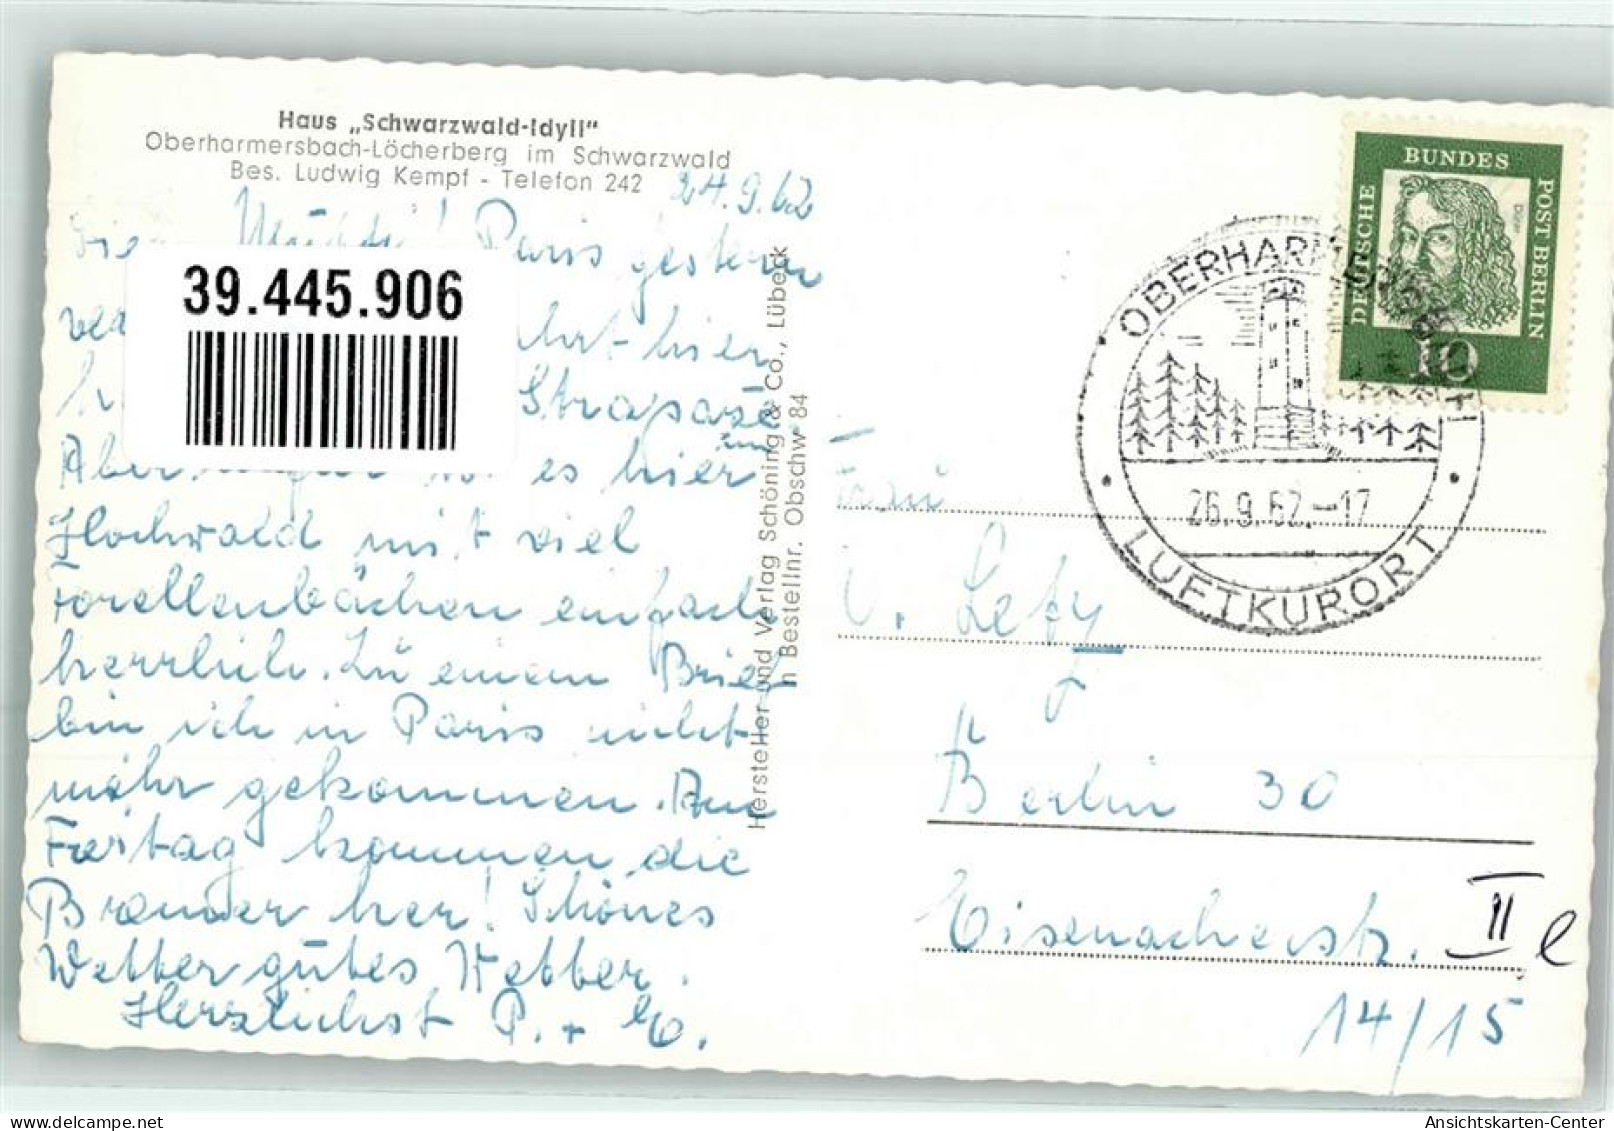 Haus „Schwarzwald-Idyll"
Oberharmersbach-Löcherberg im Schwarzwald
Bes. Ludwig Kempf - Telefon 242
24.9.62
Paris gestern
39.445.906
hier
Strapaze
Aber es hier im
Hochwald mit viel
Forellenbächen einfach
herrlich. Zu einem Brief
bin ich in Paris nicht
mehr gekommen. Am
Freitag kommen die
her! Schönes
Wetter gutes Wetter.
Herzlichst P. +
Hersteller und Verlag Schöning & Co., Lübeck
n Bestellnr. Obschw 84
DEUTSCHE
BUNDES
POST BERLIN
Dürer
10
OBERHARMERSBACH
26.9.62.-17
LUFTKURORT
Frau
Berlin 30
Eisenacherstr.
II
14/15
Ansichtskarten-Center